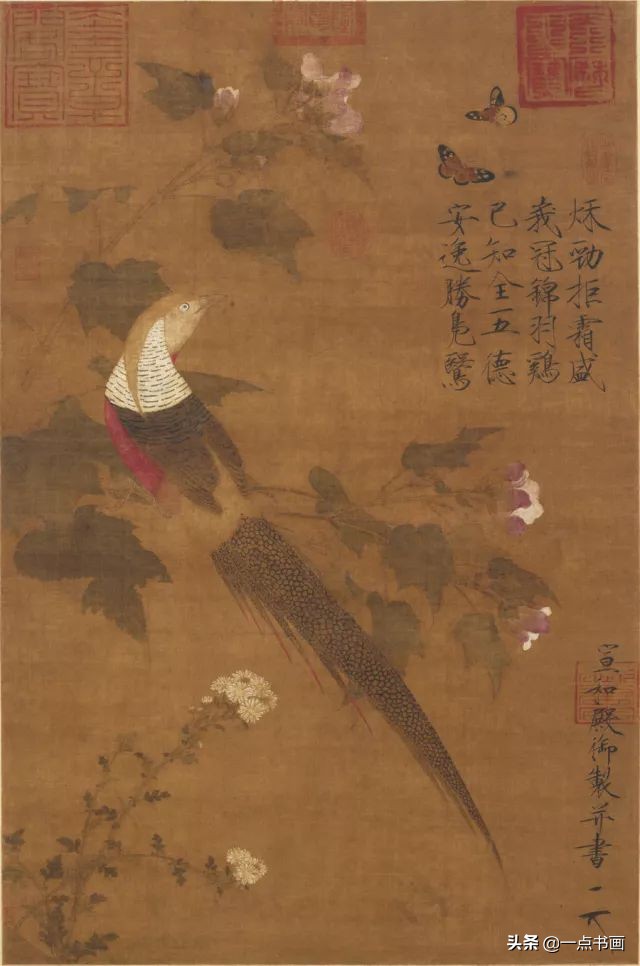 秌勁拒霜盛
峩冠錦羽鷄
已知全五德
安逸勝鳧鷖
宣和殿御製并書
头条 @一点书画